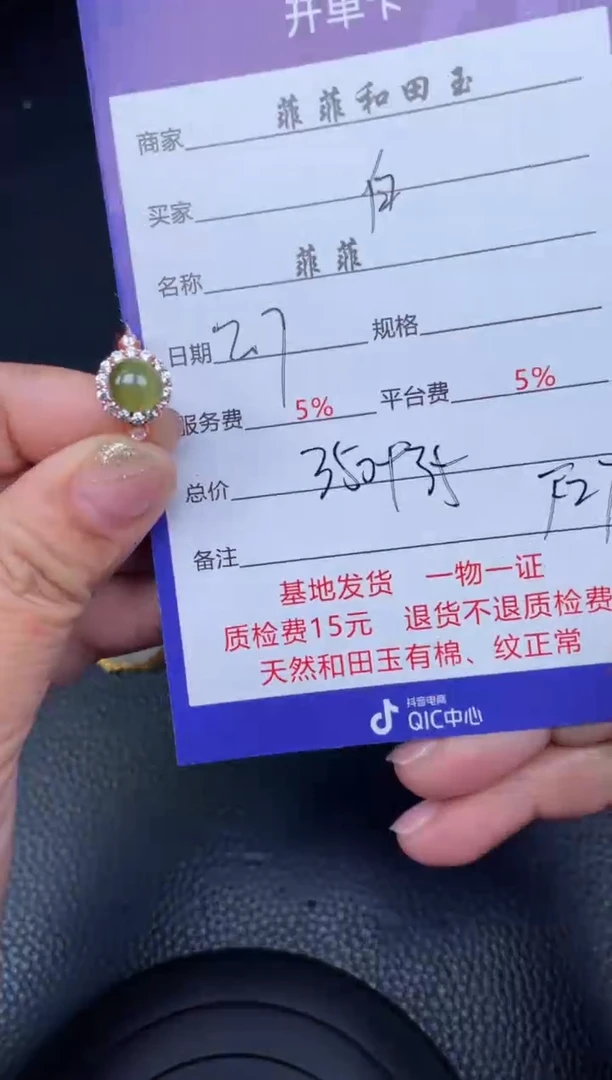 开单卡
商家 菲菲和田玉
买家 白
名称 菲菲
日期 27 规格
服务费 5% 平台费 5%
总价 350+35
备注
基地发货 一物一证
质检费15元 退货不退质检费
天然和田玉有棉、纹正常
抖音电商
QIC中心